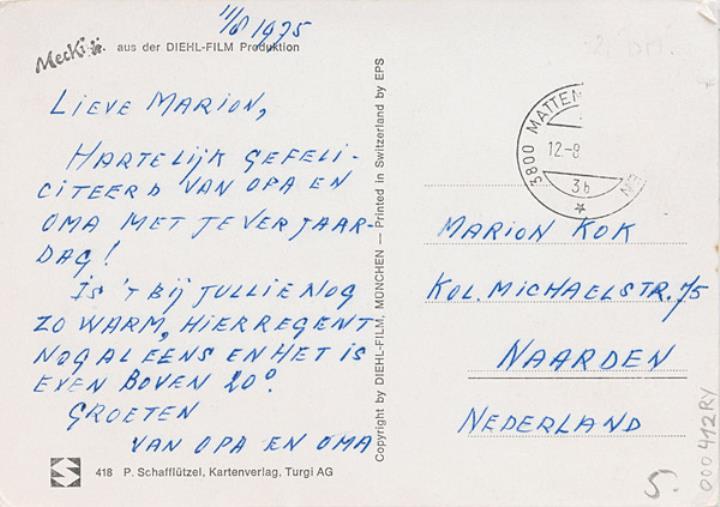 11/8 1975
Mecki aus der DIEHL-FILM Produktion
LIEVE MARION,
HARTELIJK GEFELI-
CITEERD VAN OPA EN
OMA MET JE VERJAAR-
DAG!
IS 'T BIJ JULLIE NOG
ZO WARM, HIER REGENT
NOGAL EENS EN HET IS
EVEN BOVEN 20°.
GROETEN
VAN OPA EN OMA
418 P. Schafflützel, Kartenverlag, Turgi AG
Copyright by DIEHL-FILM, MÜNCHEN — Printed in Switzerland by EPS
3800 MATTEN
12-8
3b
MARION KOK
KOL. MICHAELSTR. 75
NAARDEN
NEDERLAND
5.
000412RY